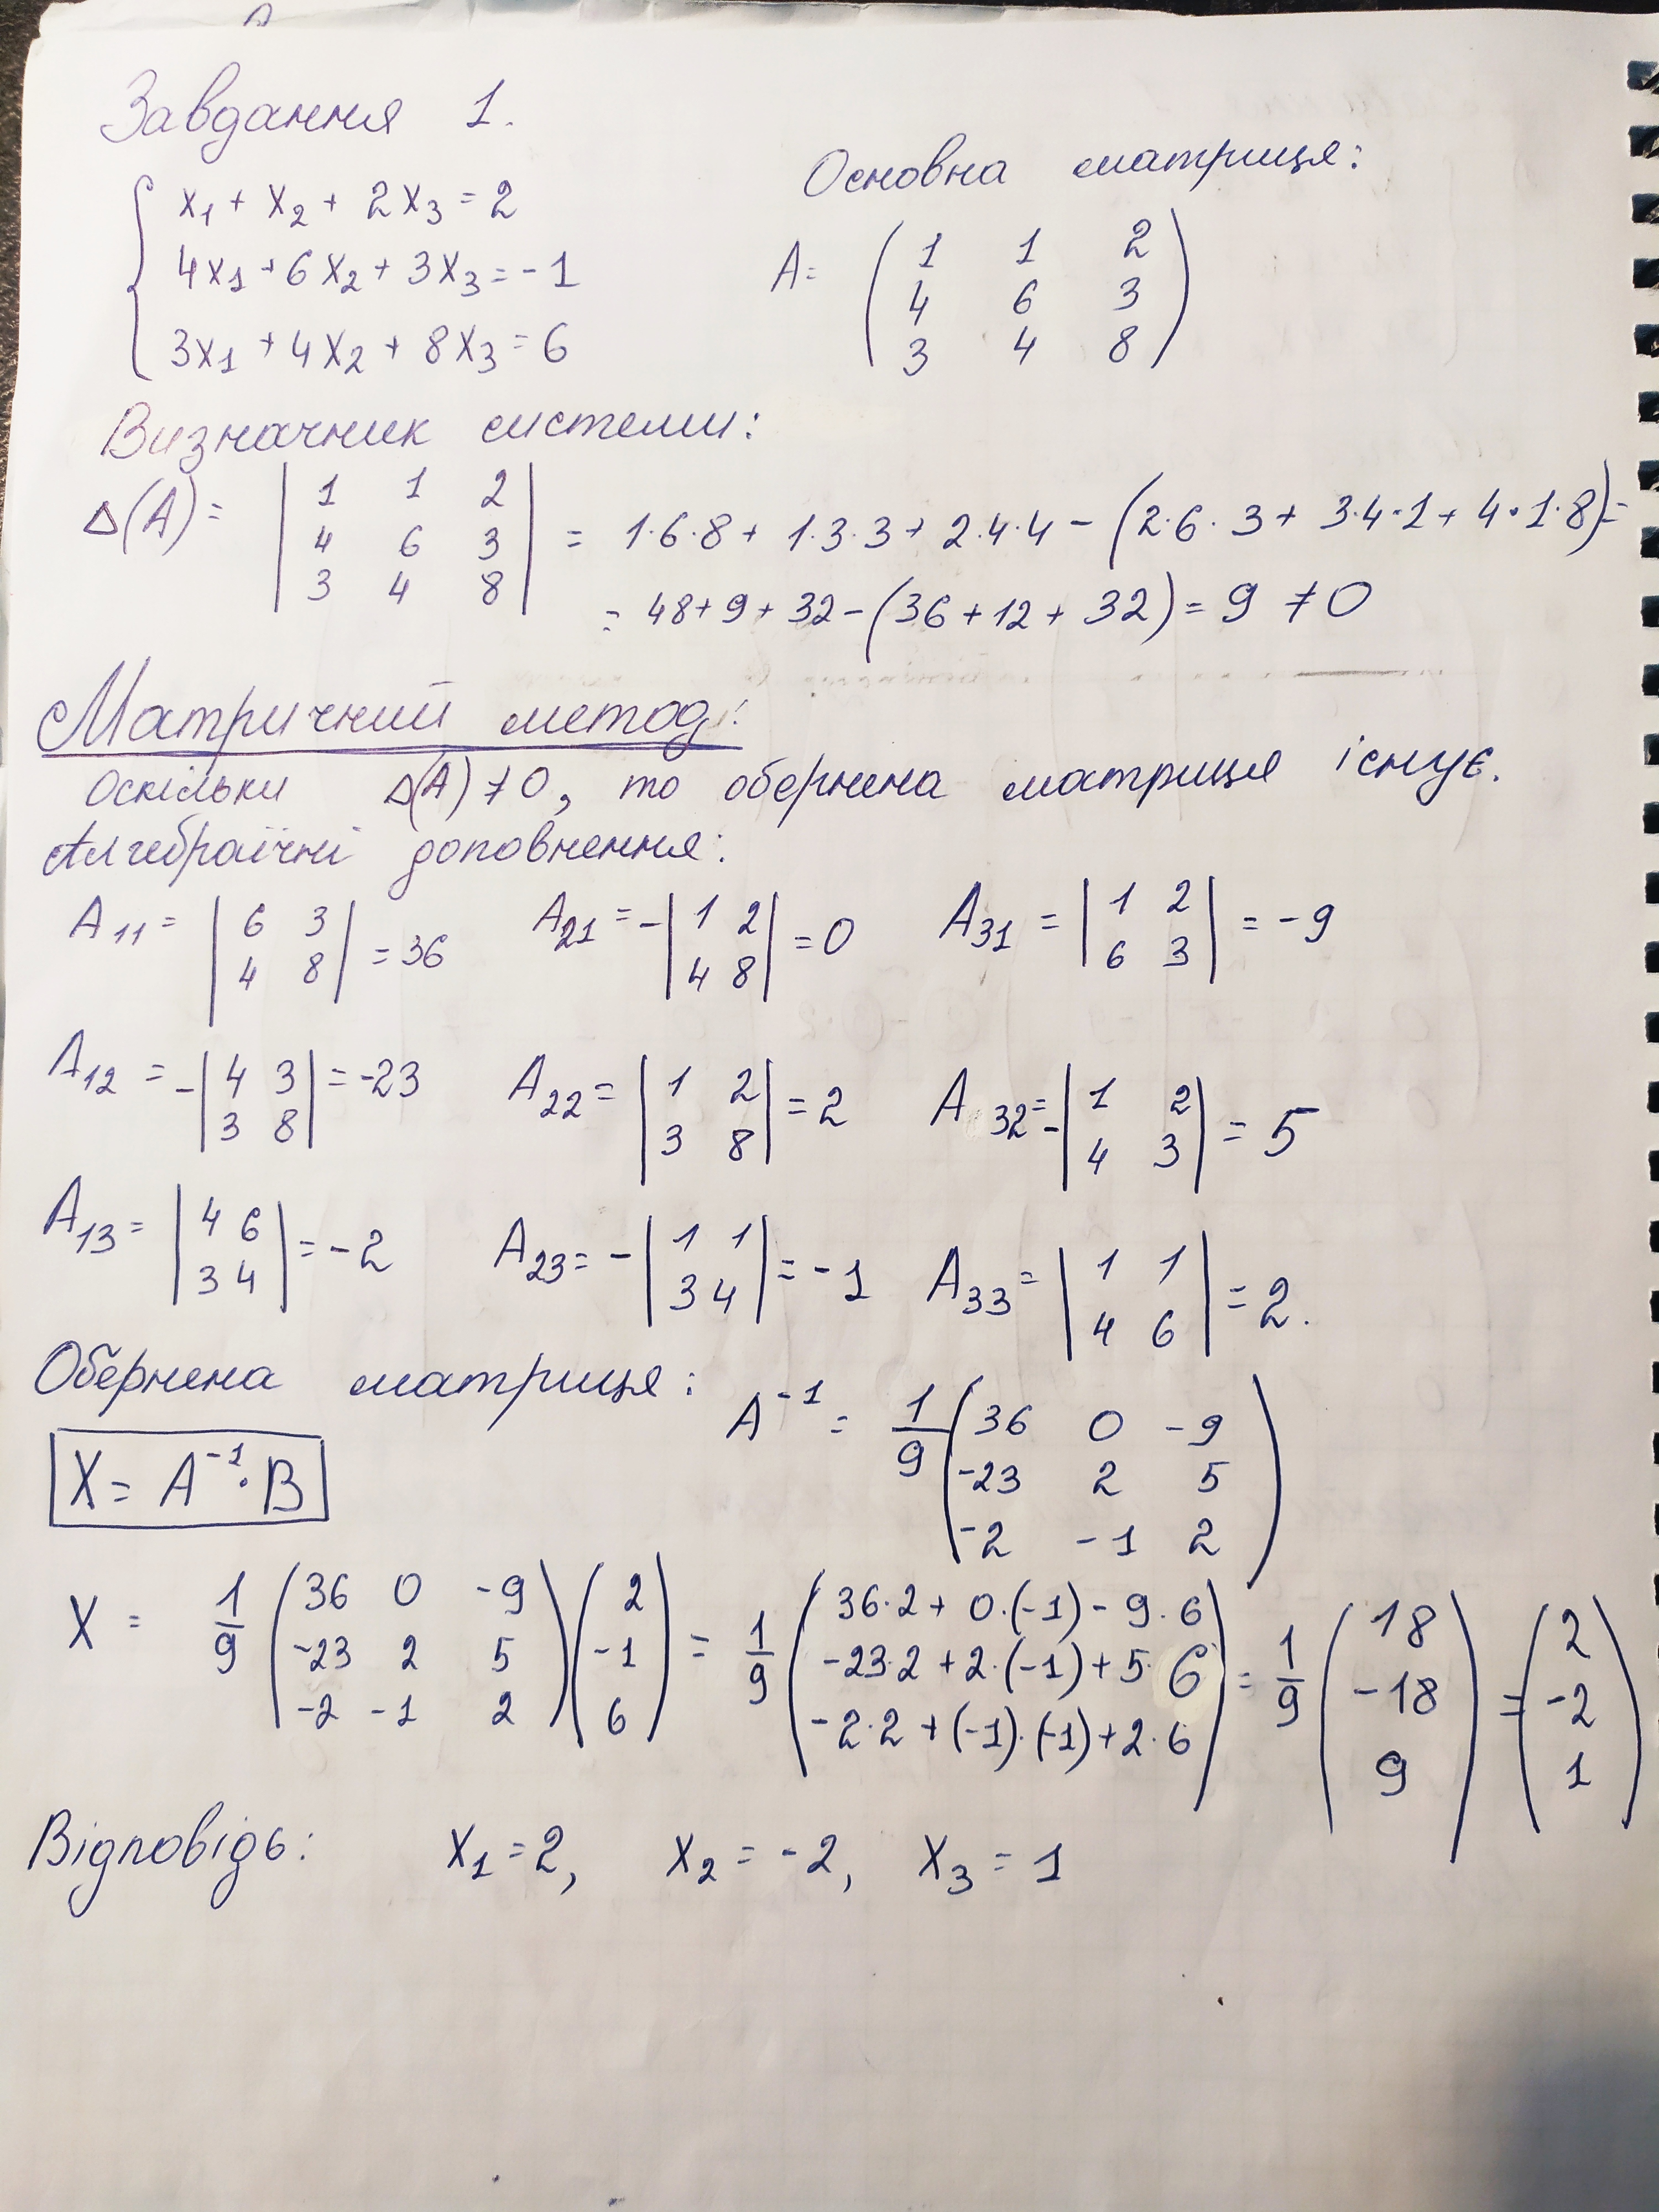 Завдання 1.
x₁ + x₂ + 2x₃ = 2
4x₁ + 6x₂ + 3x₃ = -1
3x₁ + 4x₂ + 8x₃ = 6
Основна матриця:
A = ( 1 1 2
4 6 3
3 4 8 )
Визначник системи:
Δ(A) = | 1 1 2
4 6 3
3 4 8 | = 1·6·8 + 1·3·3 + 2·4·4 - (2·6·3 + 3·4·1 + 4·1·8) =
= 48 + 9 + 32 - (36 + 12 + 32) = 9 ≠ 0
Матричний метод:
Оскільки Δ(A) ≠ 0, то обернена матриця існує.
Алгебраїчні доповнення:
A₁₁ = | 6 3 ; 4 8 | = 36 A₂₁ = -| 1 2 ; 4 8 | = 0 A₃₁ = | 1 2 ; 6 3 | = -9
A₁₂ = -| 4 3 ; 3 8 | = -23 A₂₂ = | 1 2 ; 3 8 | = 2 A₃₂ = -| 1 2 ; 4 3 | = 5
A₁₃ = | 4 6 ; 3 4 | = -2 A₂₃ = -| 1 1 ; 3 4 | = -1 A₃₃ = | 1 1 ; 4 6 | = 2.
Обернена матриця: A⁻¹ = 1/9 ( 36 0 -9
-23 2 5
-2 -1 2 )
X = A⁻¹·B
X = 1/9 ( 36 0 -9 ; -23 2 5 ; -2 -1 2 ) ( 2 ; -1 ; 6 ) = 1/9 ( 36·2 + 0·(-1) - 9·6 ; -23·2 + 2·(-1) + 5·6 ; -2·2 + (-1)·(-1) + 2·6 ) = 1/9 ( 18 ; -18 ; 9 ) = ( 2 ; -2 ; 1 )
Відповідь: x₁ = 2, x₂ = -2, x₃ = 1